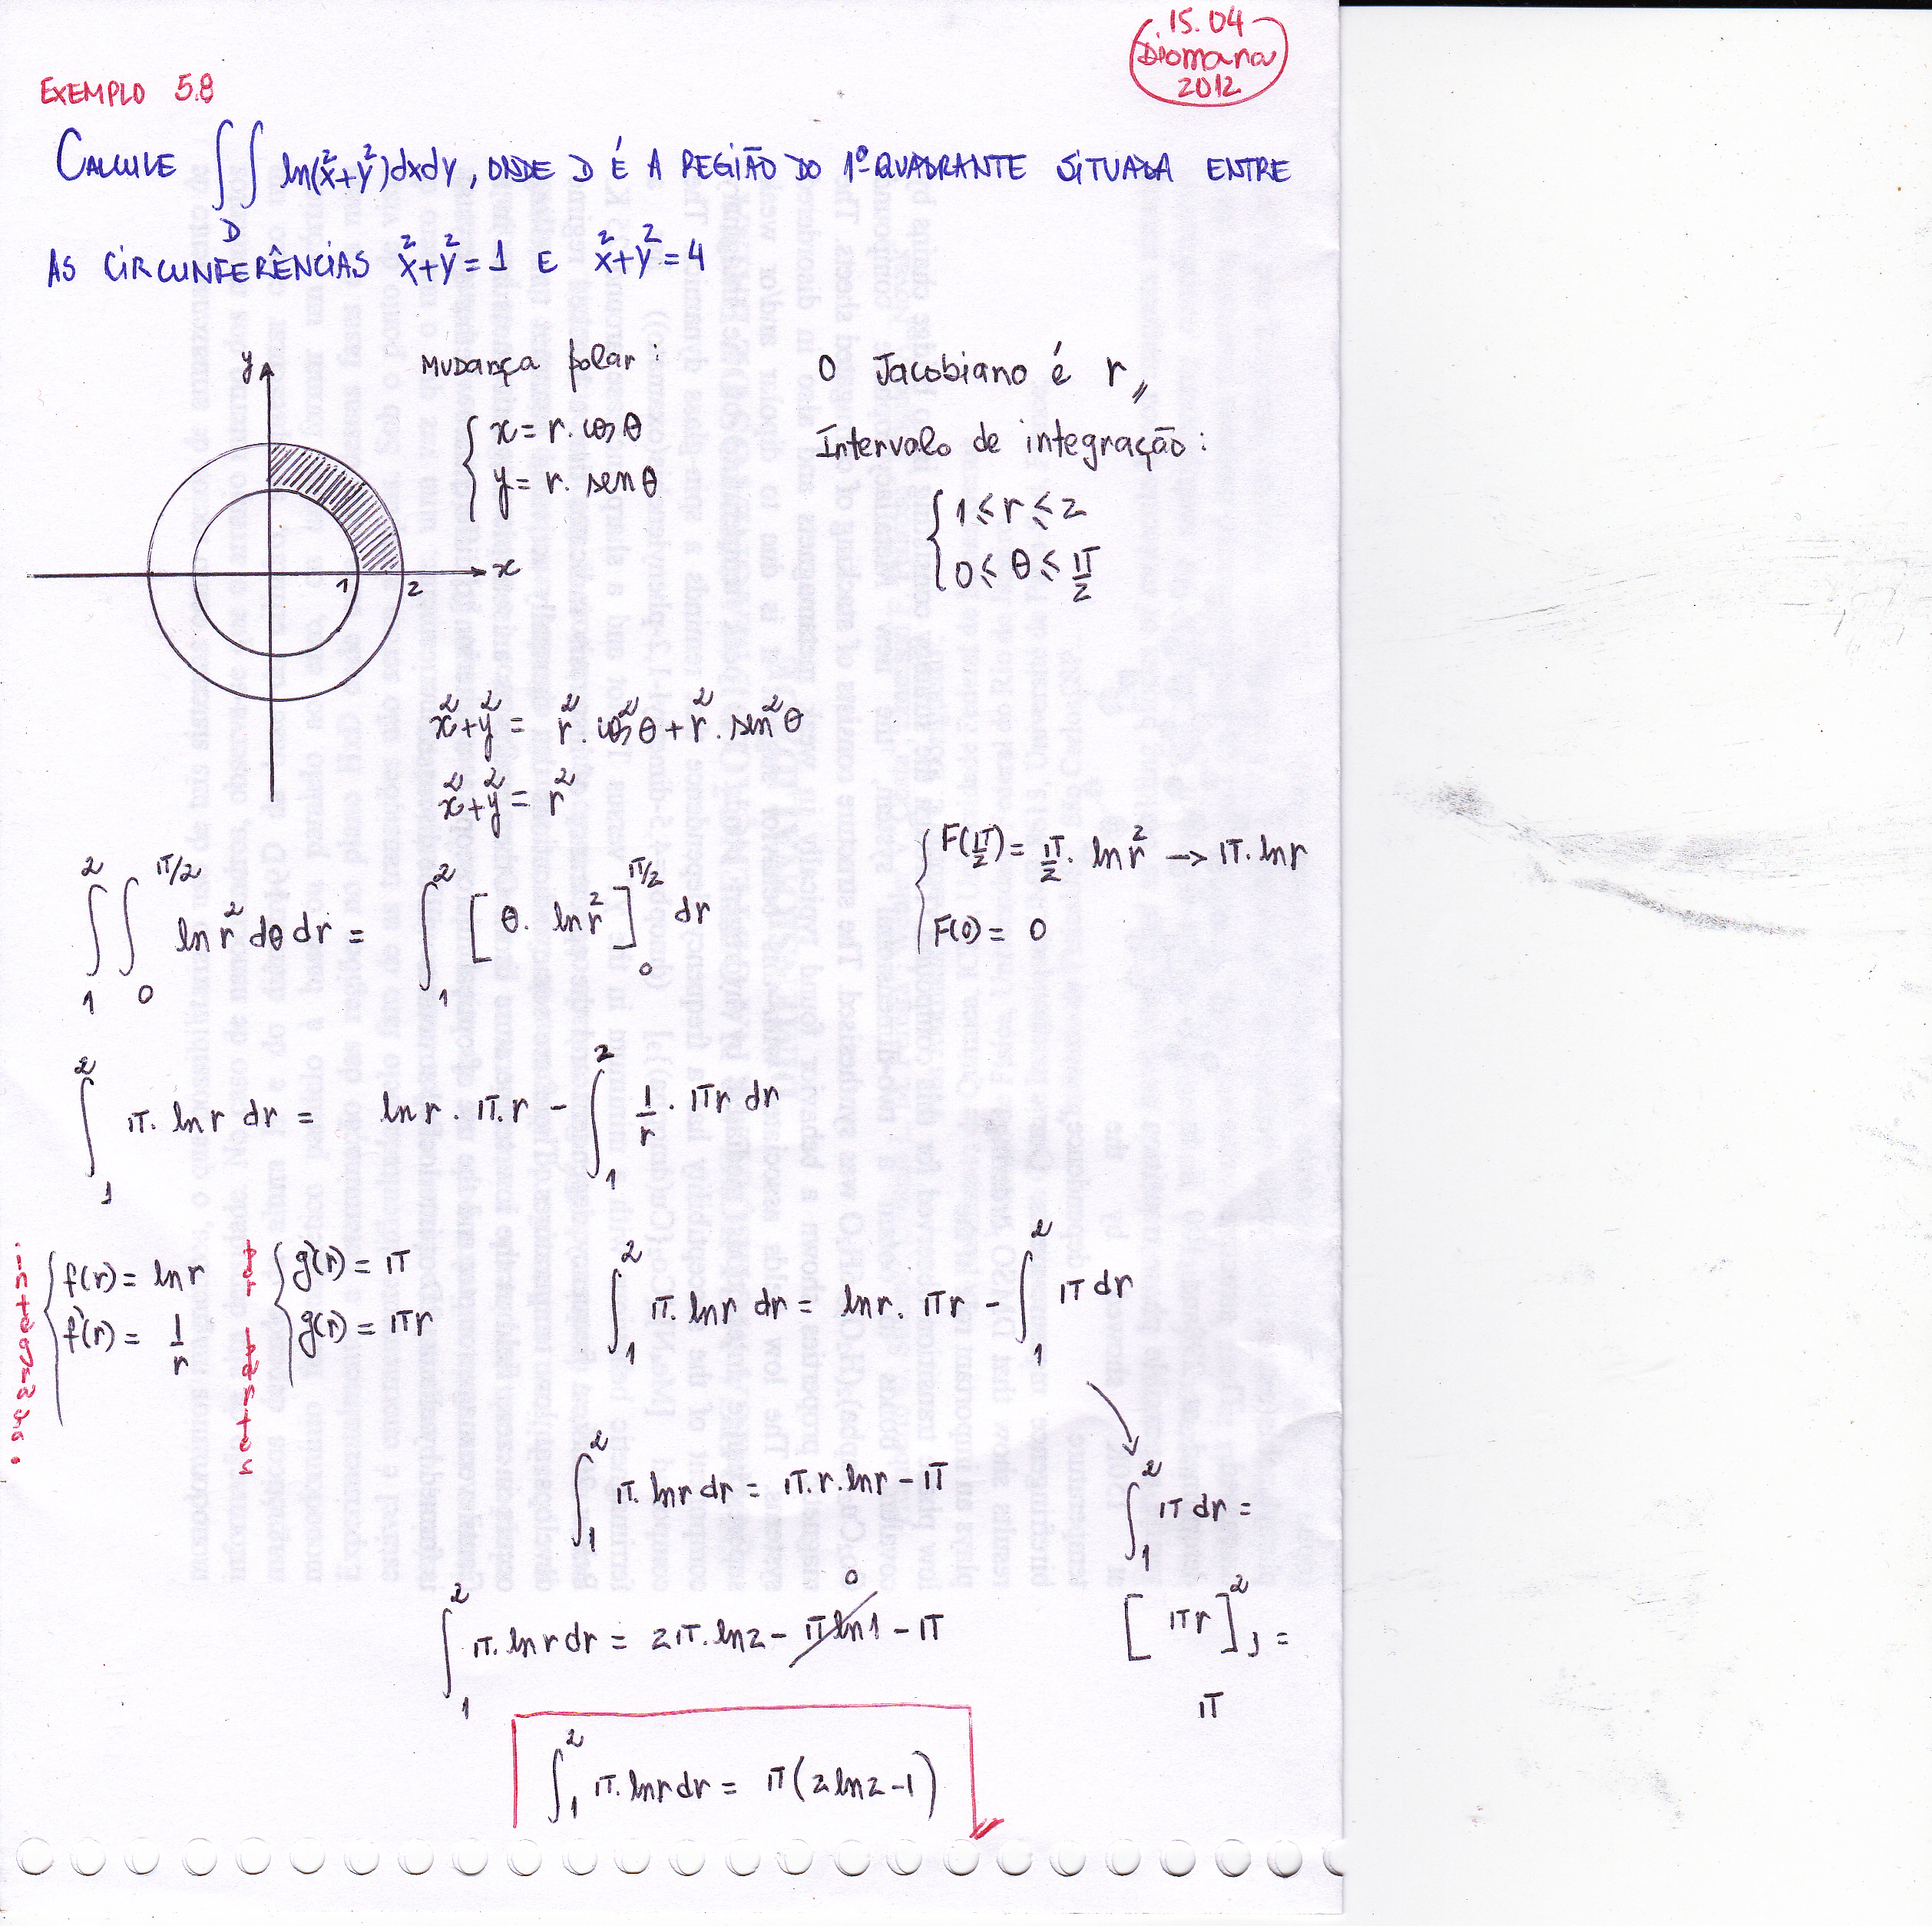 15.04
Diomara
2012
EXEMPLO 5.8
CALCULE ∫∫_D ln(x²+y²)dxdy, ONDE D É A REGIÃO DO 1º QUADRANTE SITUADA ENTRE
AS CIRCUNFERÊNCIAS x²+y²=1 E x²+y²=4
y
x
1
2
MUDANÇA polar:
{ x = r. cosθ
y = r. senθ
O Jacobiano é r,,
Intervalo de integração:
{ 1 ≤ r ≤ 2
0 ≤ θ ≤ π/2
x²+y² = r². cos²θ + r². sen²θ
x²+y² = r²
∫_1^2 ∫_0^{π/2} ln r² dθ dr = ∫_1^2 [θ. ln r²]_0^{π/2} dr
{ F(π/2) = π/2. ln r² → π. ln r
F(0) = 0
∫_1^2 π. ln r dr = ln r . π. r - ∫_1^2 1/r . πr dr
{ f(r) = ln r
f'(r) = 1/r
{ g'(r) = π
g(r) = πr
por partes
∫_1^2 π. ln r dr = ln r. πr - ∫_1^2 π dr
∫_1^2 π. ln r dr = π. r. ln r - π
∫_1^2 π dr =
[πr]_1^2 =
π
∫_1^2 π. ln r dr = 2π. ln 2 - π ln 1 - π
0
∫_1^2 π. ln r dr = π(2 ln 2 - 1)